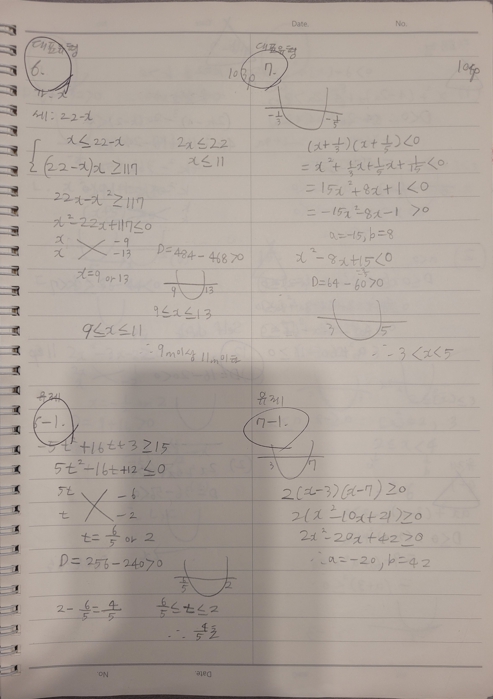 Date. No.
대표유형
6.
세: 22-x
x≤22-x 2x≤22
x≤11
(22-x)x≥117
22x-x²≥117
x²-22x+117≤0
x -9
x -13
D=484-468>0
x=9 or 13
9 13
9≤x≤13
9≤x≤11
∴ 9m이상 11m이하
대표유형
103p 7.
-1/3 -1/5
(x+1/3)(x+1/5)<0
=x²+1/3x+1/5x+1/15<0
=15x²+8x+1<0
=-15x²-8x-1>0
a=-15, b=8
x²-8x+15<0
D=64-60>0
3 5
∴ 3<x<5
유제
6-1.
-5t²+16t+3≥15
5t²-16t+12≤0
5t -6
t -2
t=6/5 or 2
D=256-240>0
6/5 2
2-6/5=4/5 6/5≤t≤2
∴ 4/5초
유제
7-1.
3 7
2(x-3)(x-7)≥0
2(x²-10x+21)≥0
2x²-20x+42≥0
∴ a=-20, b=42
No. Date